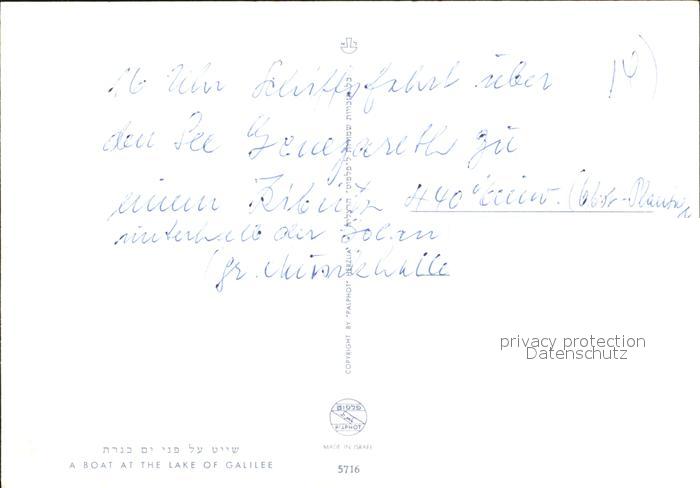 16 Uhr Schiffsfahrt über
den See Genezareth zu
einem Kibutz 440 Einw. (Obst-
unterhalb der Golan
(gr. Musikhalle
COPYRIGHT BY "PALPHOT" HERZLIA
פלפוט
PALPHOT
MADE IN ISRAEL
5716
שייט על פני ים כנרת
A BOAT AT THE LAKE OF GALILEE
privacy protection
Datenschutz